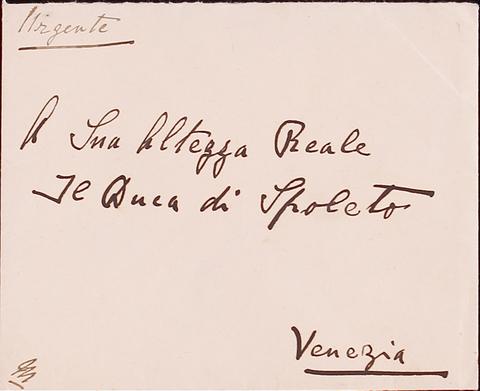 Urgente
A Sua Altezza Reale
Il Duca di Spoleto
Venezia